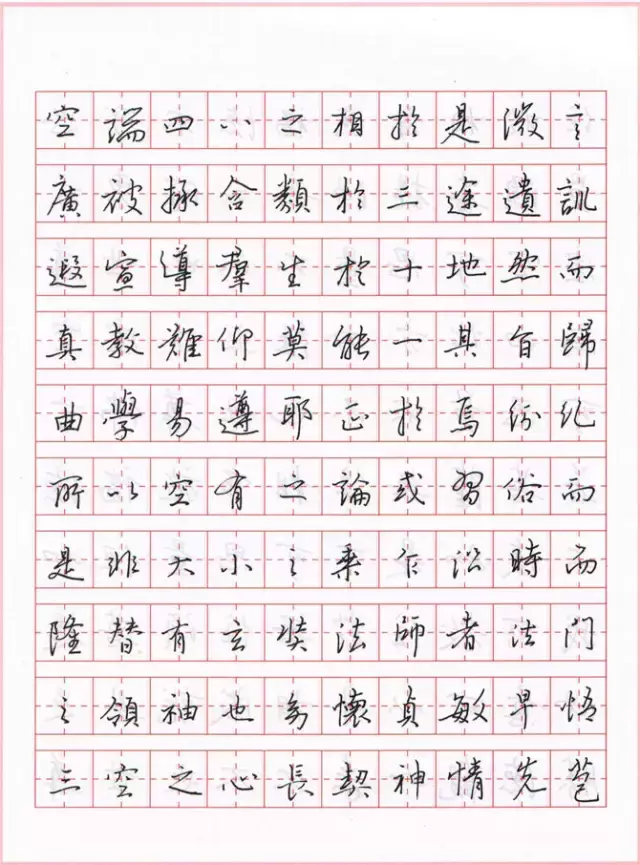 空端四八之相於是微言
廣被拯含類於三途遺訓
遐宣導群生於十地然而
真教難仰莫能一其旨歸
曲學易遵耶正於焉紛糺
所以空有之論或習俗而
是非大小之乘乍沿時而
隆替有玄奘法師者法門
之領袖也幼懷貞敏早悟
三空之心長契神情先苞